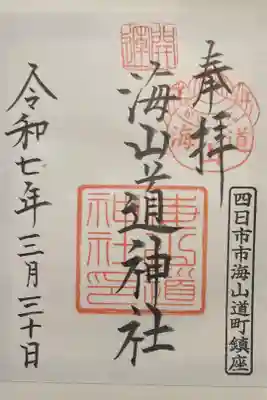 奉拝
四日市市海山道町鎮座
海山道神社
海山道
神社印
令和七年三月三十日